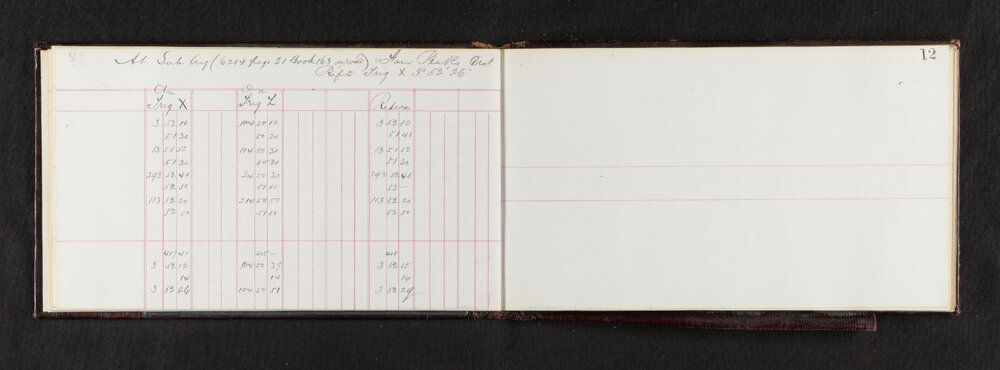 12
At Sub Trig (6214 page 21 Book 163 ) Four Peaks Dist
Ref to Trig X 3° 52' 26"
On On
Trig X Trig Z Returns
3 52 10 104 50 10 3 52 10
51 30 50 20 51 40
13 51 50 114 50 30 13 51 50
51 30 50 30 51 30
293 52 40 34 50 30 293 52 40
52 50 51 10 53 —
113 52 20 214 50 50 113 52 20
52 50 51 10 52 50
417 405 — 415
3 52 12 104 50 37 3 52 15
14 14 14
3 52 26 104 50 51 3 52 29